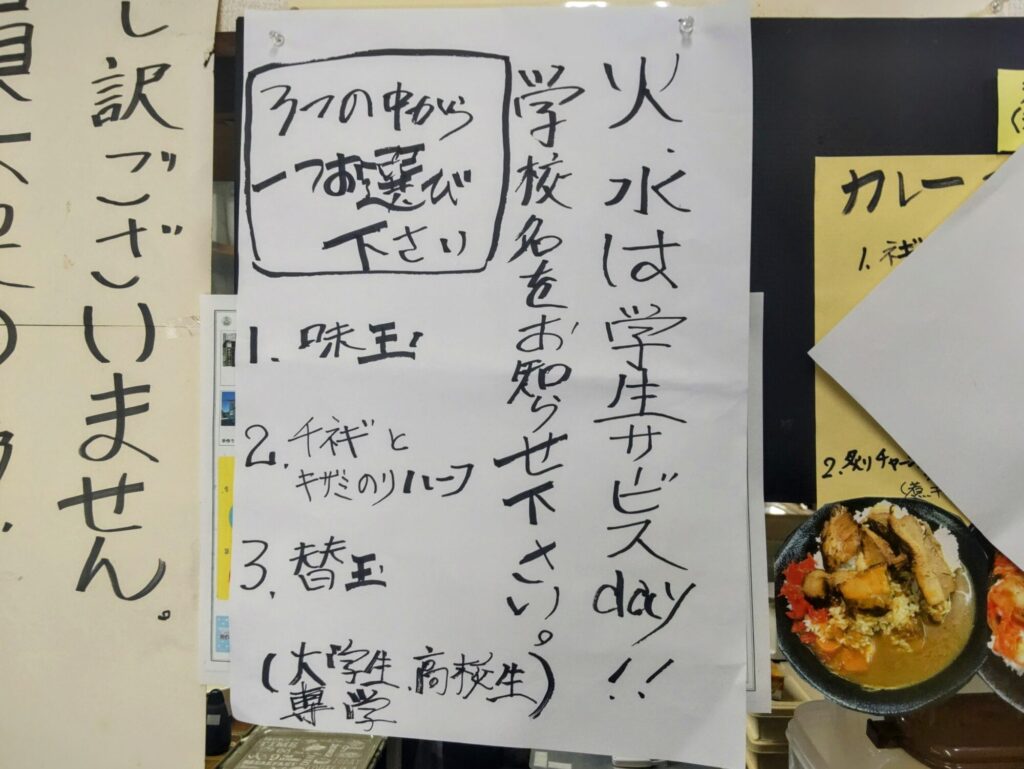 火・水は学生サービスday!!
学校名をお知らせ下さい。
3つの中から
一つお選び
下さい
1. 味玉
2. チネギと
キザミのりハーフ
3. 替玉
(大学生、高校生)
専学
し訳ございません。
カレー
1. ネギ
2. 炙りチャー